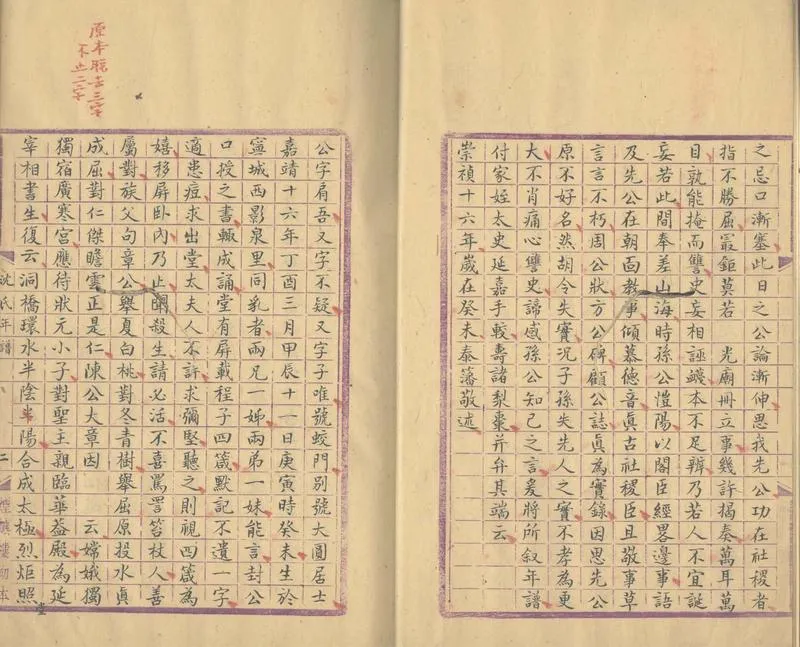 之忌口漸塞此日之公論漸伸思我先公功在社稷者
指不勝屈㝡鉅莫若 光廟冊立事幾許揭奏萬耳萬
目孰能掩而讐史妄相誣衊本不足辨乃若人不宜誕
妄若此間奉差山海時孫公愷陽以閣臣經畧邊事語
及先公在朝面教事傾慕德音真古社稷臣且敬事草
言言不朽周公狀方公傳顧公誌真為實錄因思先公
原不好名然胡令失實况子孫失先人之實不孝為更
大不肖痛心讐史諦感孫公知己之言爰將所叙年譜
付家姪太史延嘉手較壽諸梨棗并弁其端云
崇禎十六年歲在癸未泰藩敬述
原本脫去三字
不止二字
公字肩吾又字不疑又字子唯號蛟門别號大圓居士
嘉靖十六年丁酉三月甲辰十一日庚寅時癸未生於
寧城西影泉里同乳者兩兄一姊兩弟一妹能言封公
口授之書輙成誦堂有屏載程子四箴默記不遺一字
適患痘求出堂太夫人不許求彌堅聽之則視四箴為
嬉移屏卧內乃止殺生請必活不喜罵詈笞杖人善
屬對族父句章公舉夏白桃對冬青樹 舉屈原投水真
成屈對仁傑瞻雲正是仁陳公大章因 云嫦娥獨
獨宿廣寒宮應待狀元小子對聖主親臨 華蓋殿為延
宰相書生復云洞橋環水半陰半陽合成太極烈炬照
沈氏年譜 二